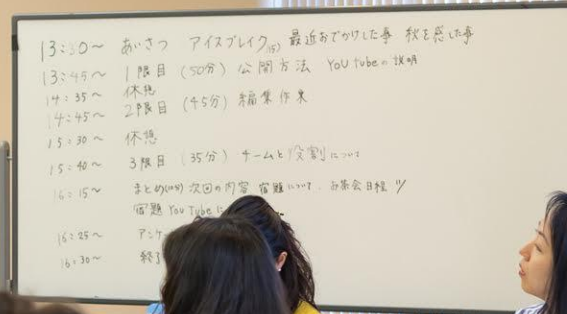 13:30～ あいさつ アイスブレイク(15) 最近おでかけした事 秋を感した事
13:45～ 1限目 (50分) 公開方法 YouTubeの説明
14:35～ 休憩
14:45～ 2限目 (45分) 編集作業
15:30～ 休憩
15:40～ 3限目 (35分) チームと役割について
16:15～ まとめ(10分) 次回の内容 宿題について、お茶会日程
宿題 YouTube
16:25～ アンケ
16:30～ 終了